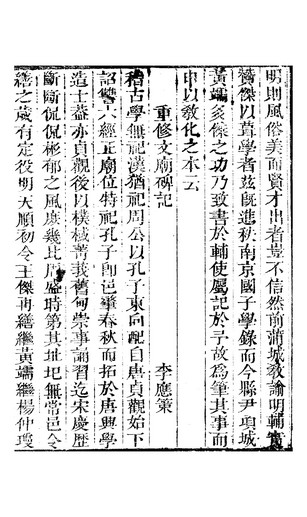 明則風俗美而賢才出者豈不信然前蒲城教諭明輔實
贊傑以造學者茲旣進秩南京國子學錄而今縣尹項城
黃㻛多傑之功乃致書於輔使屬記於予故爲筆其事而
申以敎化之本云
重修文廟碑記
李應策
稽古學無祀漢猶祀周公以孔子東向配自唐貞觀始下
詔讐六經正廟位特祀孔子卽邑肇春秋而拓於唐興學
造士葢亦貞觀後以樸棫菁莪舊甸崇事誦習迄宋慶歷
斷斷侃侃彬郁之風庶幾比周盛時第其址圯無常邑令
繕之歲有定役明天順初令王傑再繕繼黃㻛繼楊仲瓊